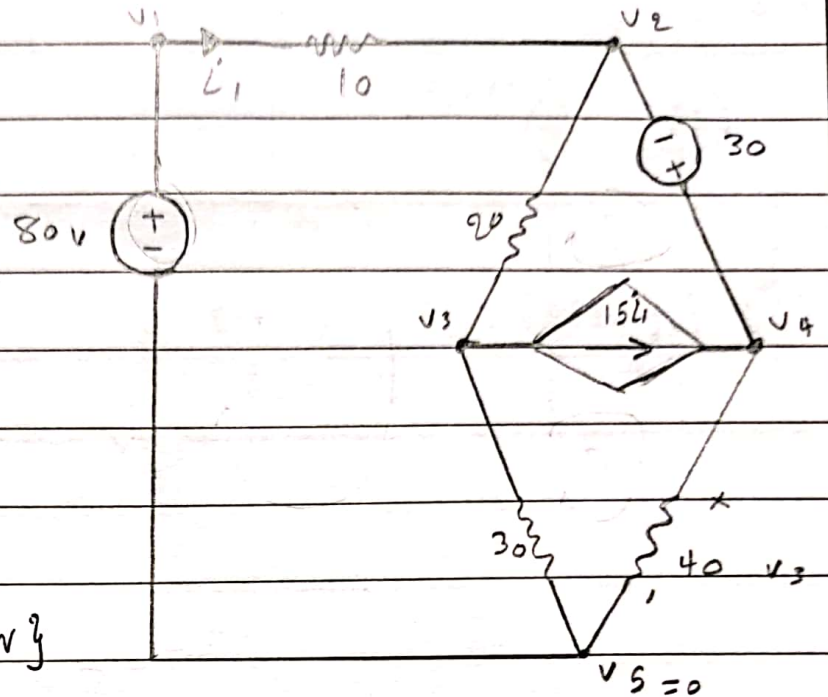 V1
V2
i1
10
-
+
30
80v
+
-
20
V3
15i1
V4
30
x
40
V3
v}
V5 = 0